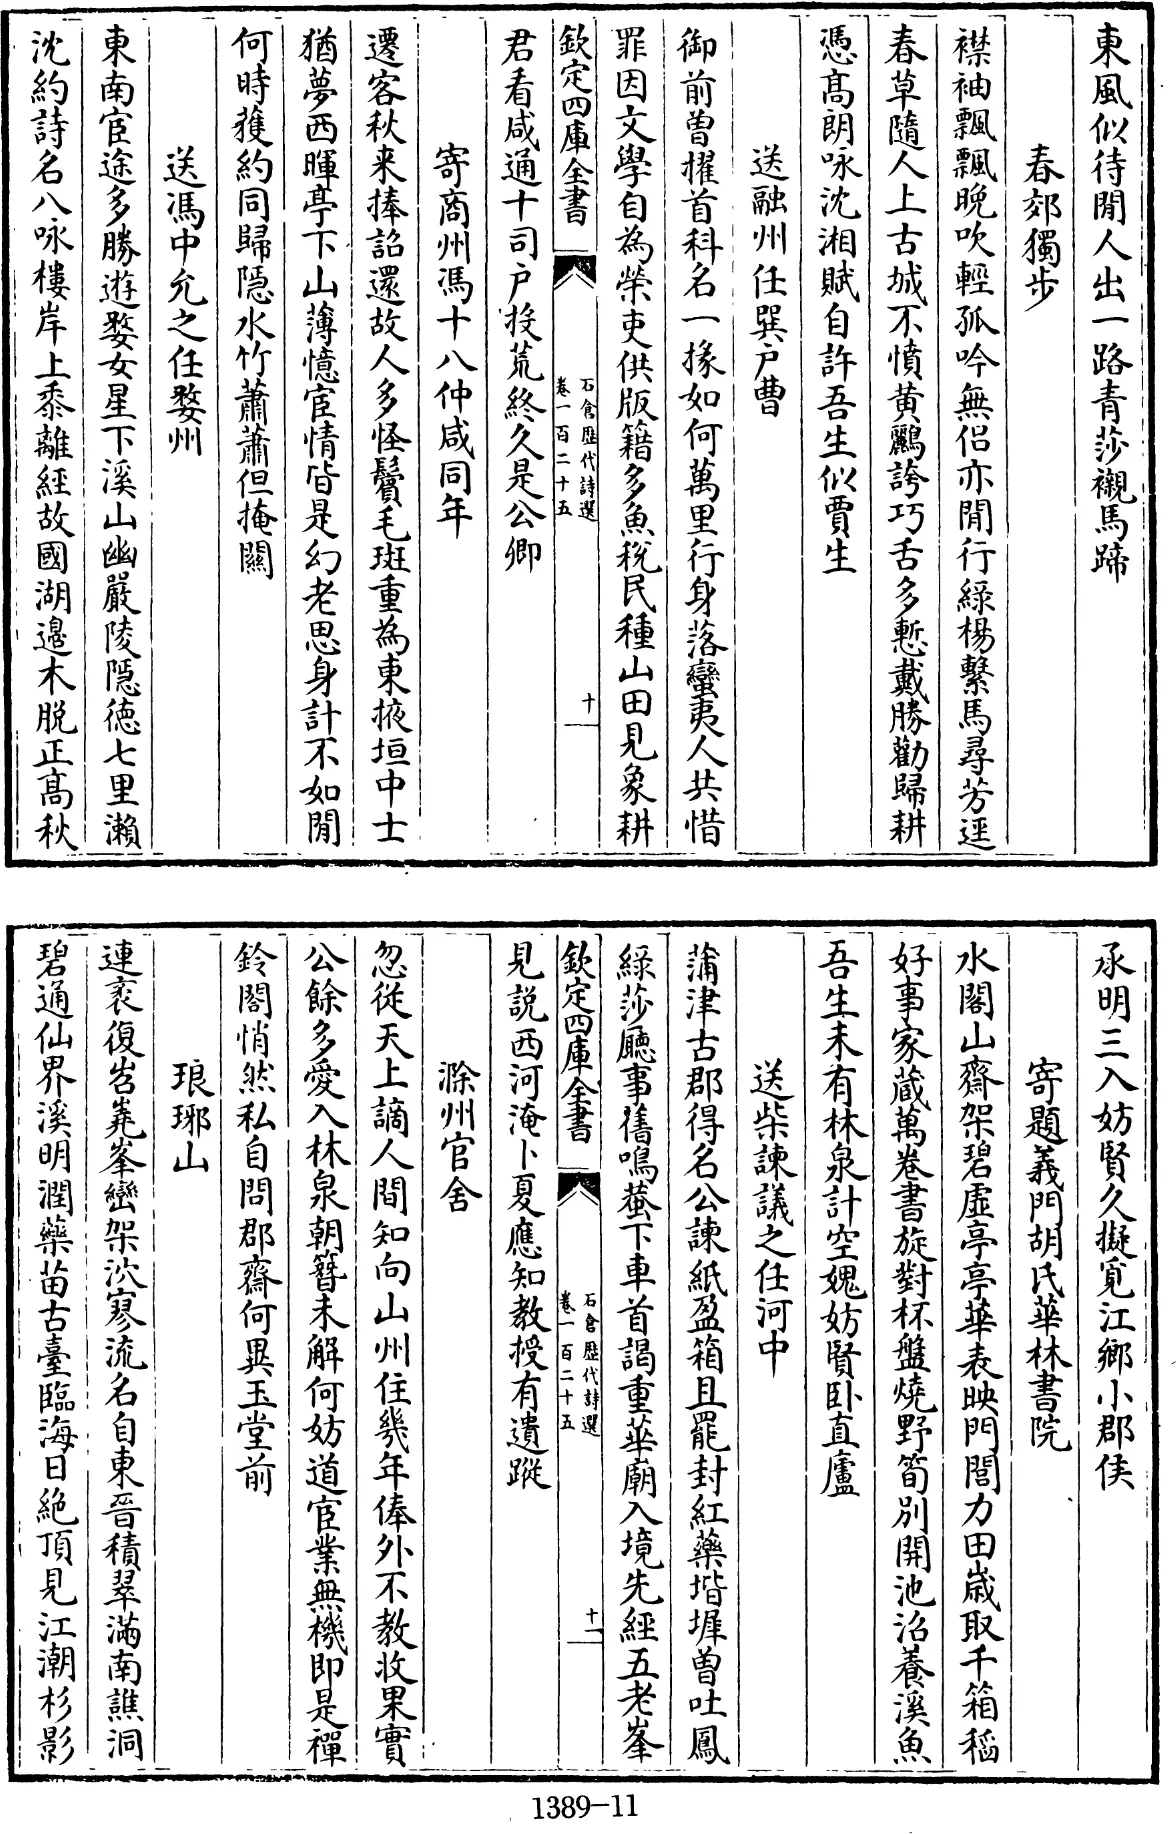 東風似待閒人出一路青莎襯馬蹄
春郊獨步
襟袖飄飄晚吹輕孤吟無侶亦閒行綠楊繫馬尋芳逕
春草隨人上古城不憤黃鸝誇巧舌多慙戴勝勸歸耕
憑髙朗咏沈湘賦自許吾生似賈生
送融州任巽户曹
御前曽擢首科名一掾如何萬里行身落蠻夷人共惜
罪因文學自為榮吏供版籍多魚稅民種山田見象耕
欽定四庫全書
石倉歷代詩選
卷一百二十五
十
君看咸通十司户投荒終久是公卿
寄商州馮十八仲咸同年
遷客秋来捧詔還故人多怪鬢毛斑重為東掖垣中士
猶夢西暉亭下山薄憶宦情皆是幻老思身計不如閒
何時獲約同歸隠水竹蕭蕭但掩關
送馮中允之任婺州
東南宦途多勝遊婺女星下溪山幽嚴陵隠徳七里瀨
沈約詩名八咏樓岸上黍離經故國湖邉木脱正髙秋
承明三入妨賢久擬覓江鄉小郡侯
寄題義門胡氏華林書院
水閣山齋架碧虛亭亭華表映門閭力田歲取千箱稻
好事家藏萬卷書旋對杯盤燒野筍别開池沼養溪魚
吾生未有林泉計空媿妨賢卧直廬
送柴諫議之任河中
蒲津古郡得名公諫紙盈箱且罷封紅藥堦墀曽吐鳳
綠莎廳事舊鳴蛩下車首謁重華廟入境先經五老峯
欽定四庫全書
石倉歷代詩選
卷一百二十五
十一
見説西河淹卜夏應知教授有遺蹤
滁州官舍
忽從天上謫人間知向山州住幾年俸外不教收果實
公餘多愛入林泉朝簪未解何妨道宦業無機即是禪
鈴閣悄然私自問郡齋何異玉堂前
琅琊山
連袤復岧嶤峯巒架泬寥流名自東晉積翠滿南譙洞
碧通仙界溪明潤藥苗古臺臨海日絶頂見江潮杉影
1389-11